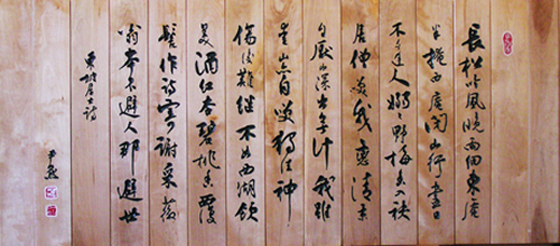 長松吟風晚雨細東庵
半掩西庵閉山行盡日
不逢人嫋々野梅香入袂
居僧笑我戀清景
自厭山深出無計我雖
愛山亦自笑獨往神
傷後難繼不如西湖飲
美酒紅杏碧桃香覆
髻作詩寄謝采薇
翁本不避人那避世
東坡居士詩